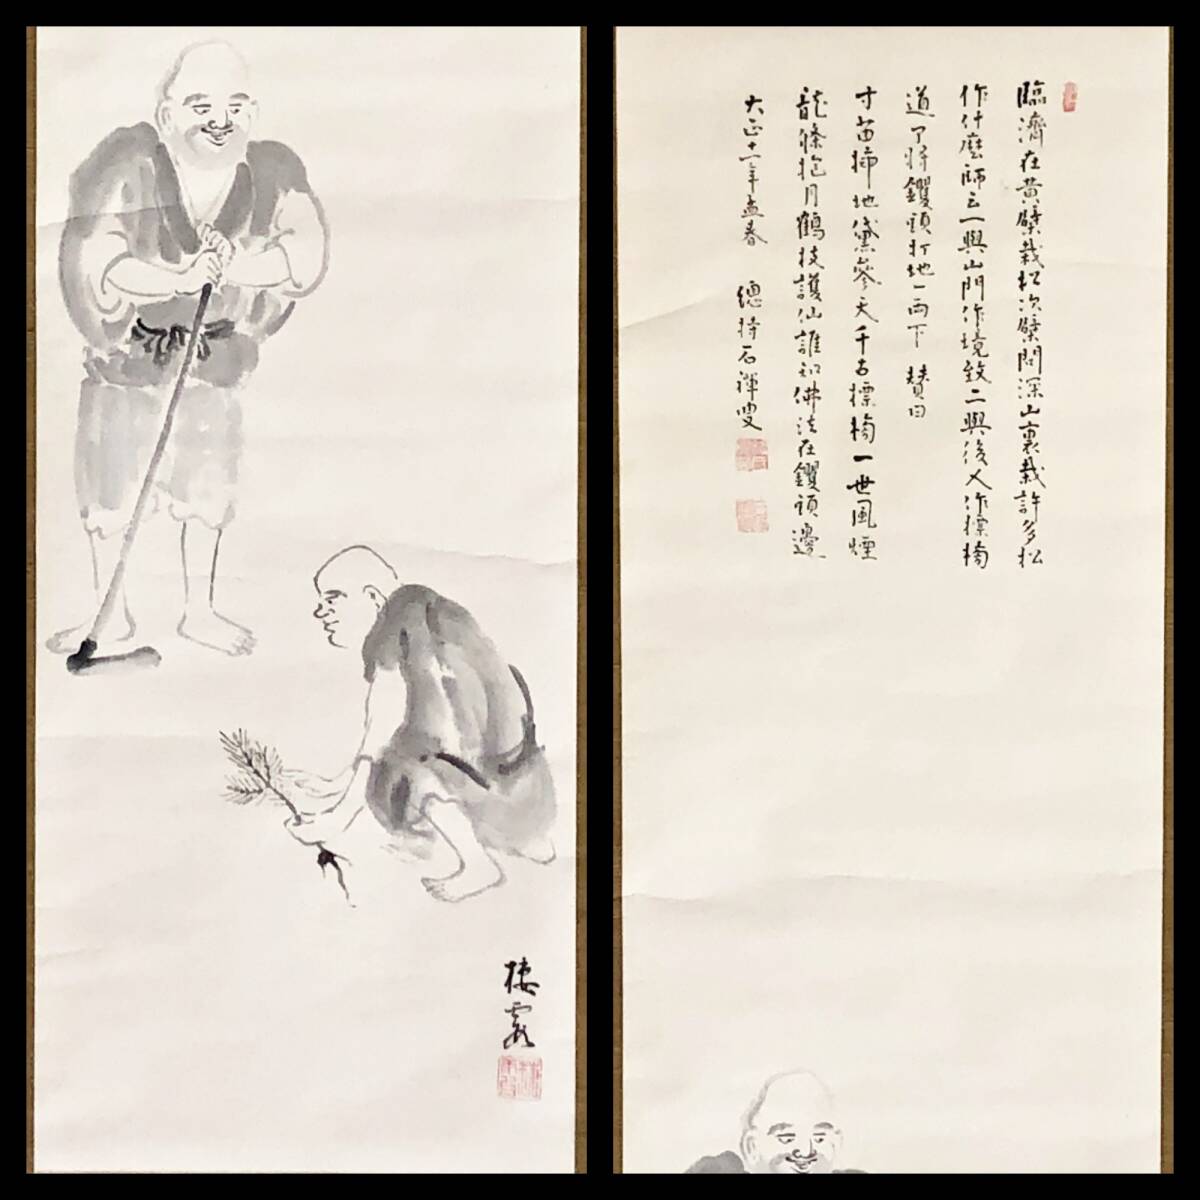 臨濟在黄檗栽松次檗問深山裏栽許多松
作什麼師云一與山門作境致二與後人作標榜
道了將钁頭打地一兩下 賛曰
寸苗挿地黛參天千古標榜一世風煙
龍條抱月鶴枝護仙誰知佛法在钁頭邊
大正十一年孟春 總持石禅叟
棲霞